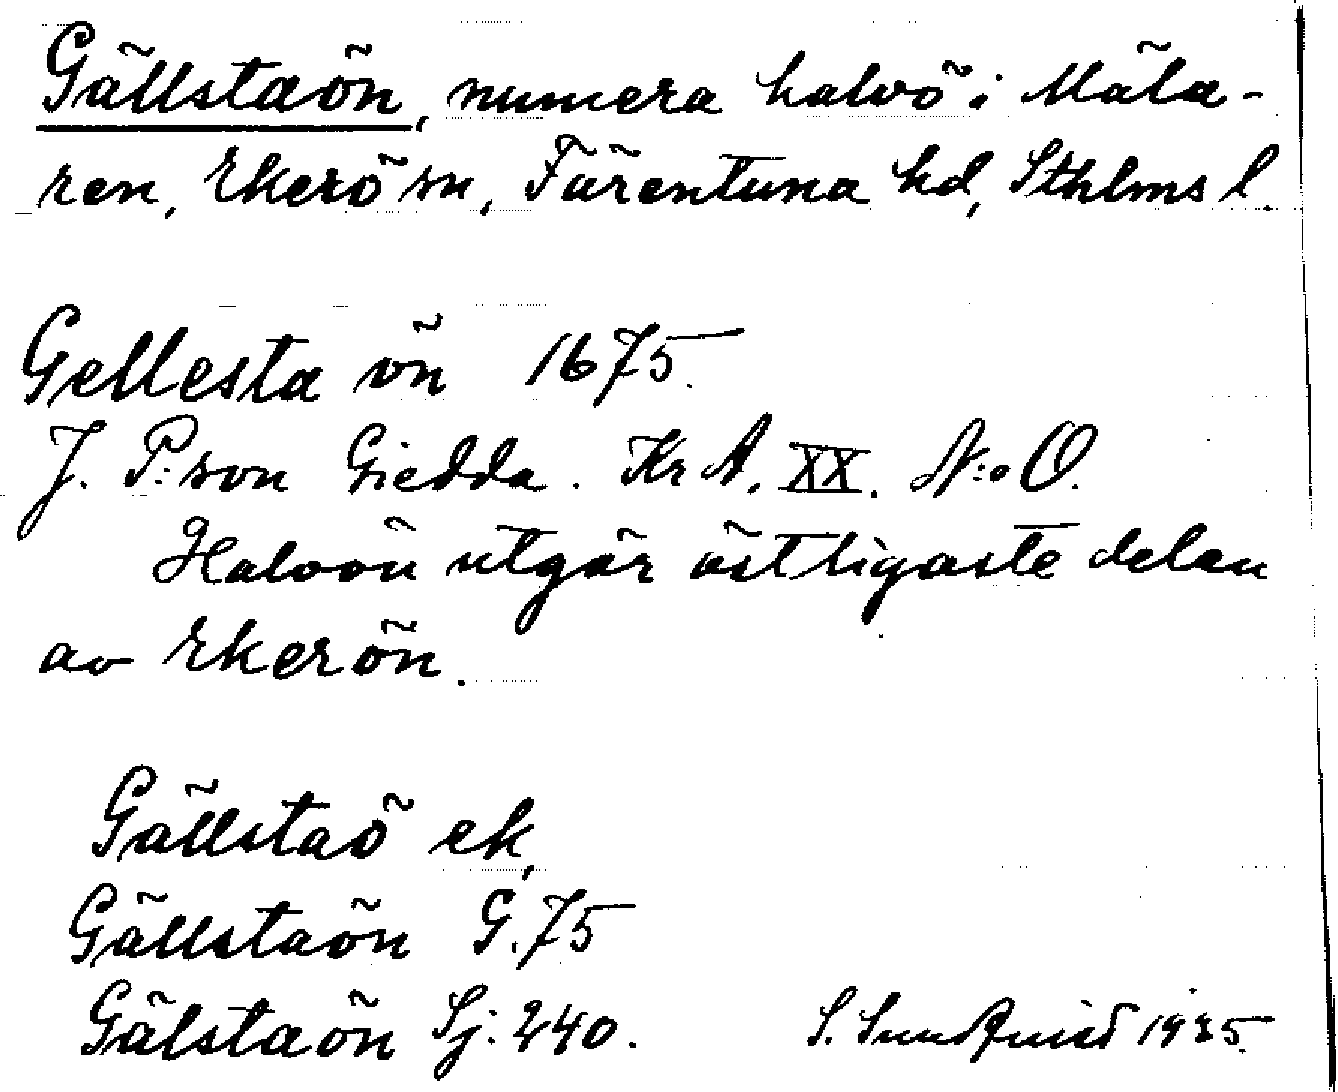 Gällstaön, numera halvö i Mäla-
ren, Ekerö sn, Färentuna hd, Sthlms l.
Gellesta ön 1675.
J. P:son Giedda. Kr A. XX. N:o O.
Halvön utgör östligaste delen
av Ekerön.
Gällstaö ek,
Gällstaön G. 75
Gälstaön Sj: 240.
S. Sundquist 1935.